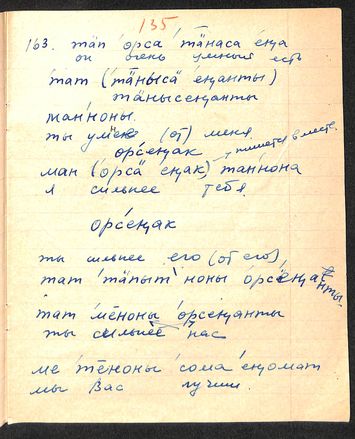 135
163. тӓп орса тӓнаса еӊа
он очень умный есть
тат (тӓныса еӊанты)
тӓнысеӊанты
ман'ноны.
ты умнее (от) меня
орсеӊак пишется вместе
ман (орсӓ еӊак), тан'нона
я сильнее тебя.
орсеӊак
ты сильнее его (от его)
тат тӓпыт ноны орсеӊанты.
тат мёноны орсеӊанты
ты сильнее нас
ме тёноны сома еӊомат
мы вас лучше.